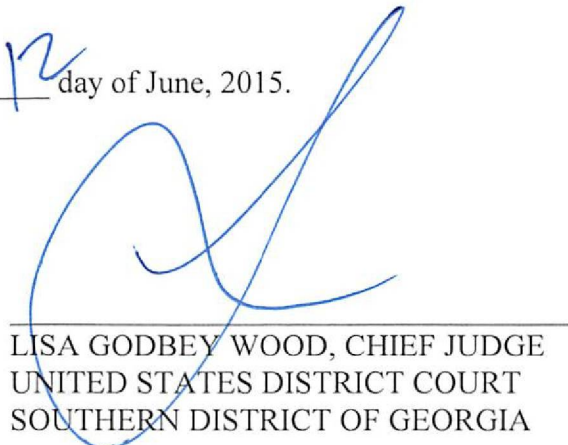 12 day of June, 2015.
LISA GODBEY WOOD, CHIEF JUDGE
UNITED STATES DISTRICT COURT
SOUTHERN DISTRICT OF GEORGIA